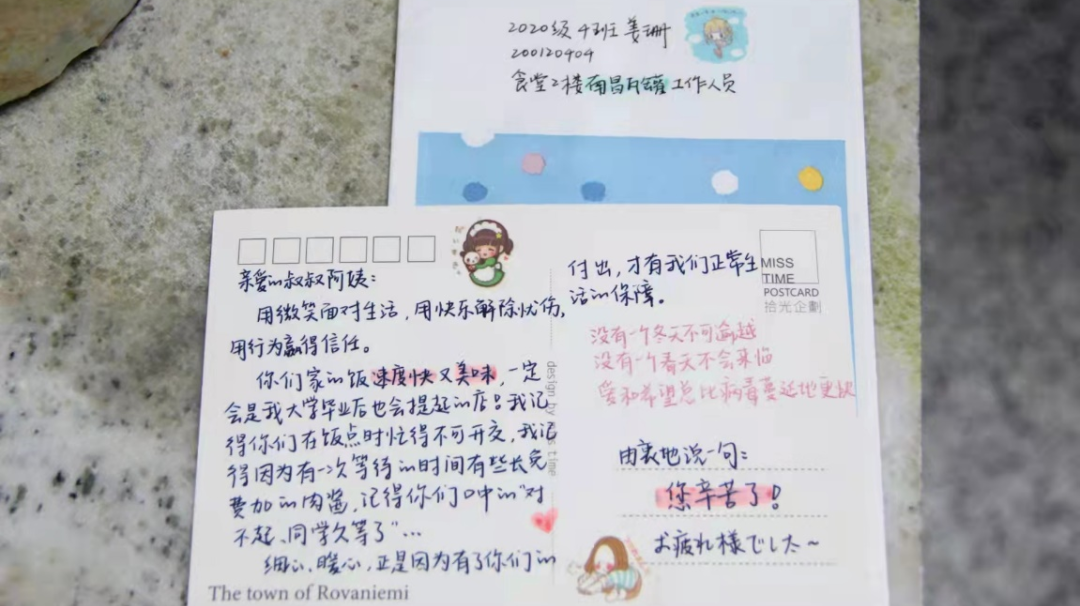 2020级4班姜珊
200120404
食堂2楼南昌瓦罐工作人员
亲爱的叔叔阿姨：
用微笑面对生活，用快乐解除忧伤，
用行为赢得信任。
你们家的饭速度快又美味，一定
会是我大学毕业后也会提起的店！我记
得你们在饭点时忙得不可开交，我记
得因为有一次等待的时间有些长免
费加的肉酱，记得你们口中的“对
不起、同学久等了”…
细心、暖心，正是因为有了你们的
The town of Rovaniemi
design by miss time
付出，才有我们正常生
活的保障。
MISS
TIME
POSTCARD
拾光企劃
没有一个冬天不可逾越
没有一个春天不会来临
爱和希望总比病毒蔓延地更快
由衷地说一句：
您辛苦了！
お疲れ様でした～